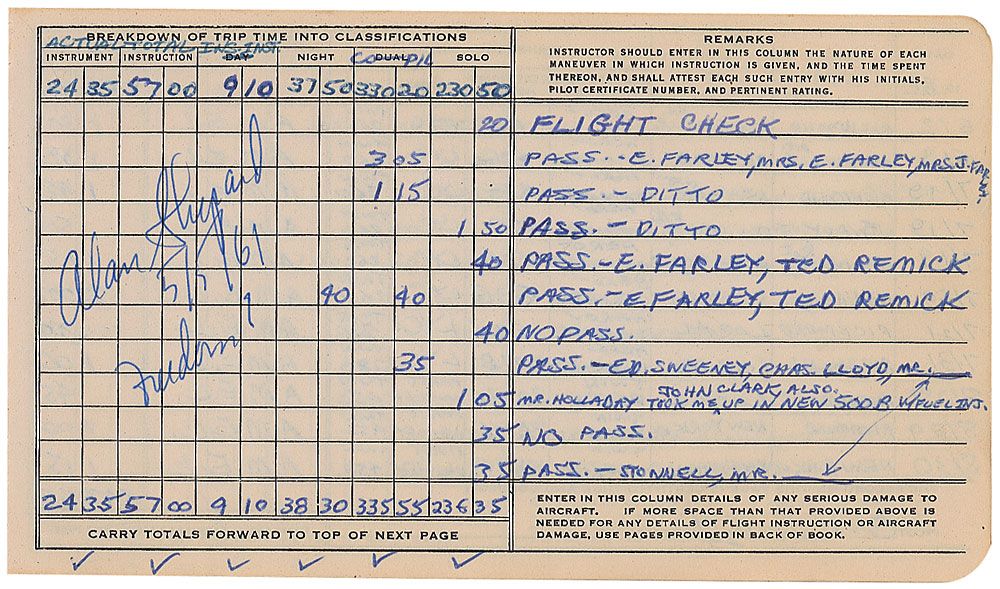 BREAKDOWN OF TRIP TIME INTO CLASSIFICATIONS
ACTUAL TOTAL INS. INST.
INSTRUMENT INSTRUCTION DAY NIGHT DUAL SOLO
CO PIL
24 35 57 00 9 10 37 50 330 20 230 50
REMARKS
INSTRUCTOR SHOULD ENTER IN THIS COLUMN THE NATURE OF EACH
MANEUVER IN WHICH INSTRUCTION IS GIVEN, AND THE TIME SPENT
THEREON, AND SHALL ATTEST EACH SUCH ENTRY WITH HIS INITIALS,
PILOT CERTIFICATE NUMBER, AND PERTINENT RATING.
20 FLIGHT CHECK
3 05 PASS. - E. FARLEY, MRS. E. FARLEY, MRS. J. FARS.
1 15 PASS. - DITTO
1 50 PASS. - DITTO
40 PASS. - E. FARLEY, TED REMICK
40 40 PASS. - E FARLEY, TED REMICK
40 NO PASS.
35 PASS. - ED. SWEENEY, CHAS. LLOYD, MR.
JOHN CLARK, ALSO.
1 05 MR. HOLLADAY TOOK ME UP IN NEW 500B W/FUEL INJ.
35 NO PASS.
35 PASS. - STONNELL, MR.
Alan Shepard
5/5/61
Freedom 7
24 35 57 00 9 10 38 30 335 55 236 35
CARRY TOTALS FORWARD TO TOP OF NEXT PAGE
ENTER IN THIS COLUMN DETAILS OF ANY SERIOUS DAMAGE TO
AIRCRAFT. IF MORE SPACE THAN THAT PROVIDED ABOVE IS
NEEDED FOR ANY DETAILS OF FLIGHT INSTRUCTION OR AIRCRAFT
DAMAGE, USE PAGES PROVIDED IN BACK OF BOOK.